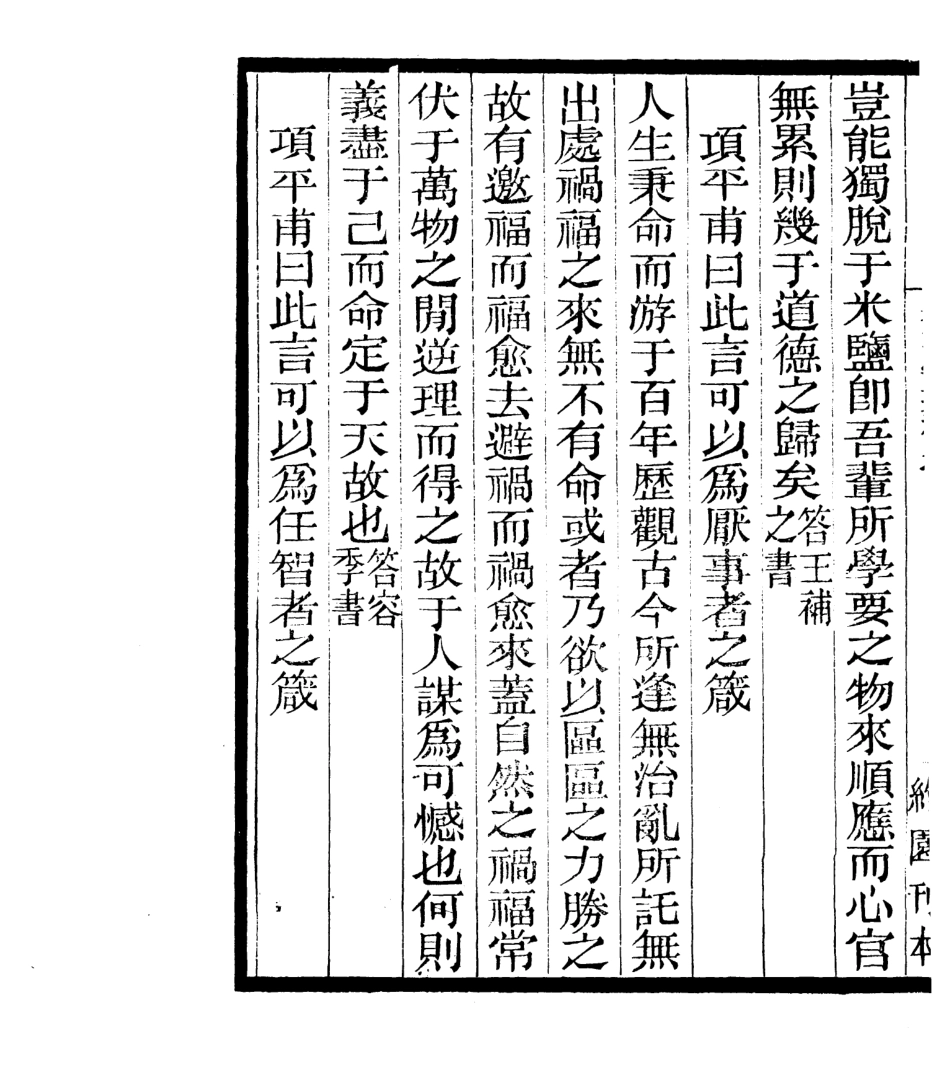 豈能獨脫于米鹽卽吾輩所學要之物來順應而心官
無累則幾于道德之歸矣答王補之書
項平甫曰此言可以爲厭事者之箴
人生秉命而游于百年歷觀古今所逢無治亂所託無
出處禍福之來無不有命或者乃欲以區區之力勝之
故有邀福而福愈去避禍而禍愈來蓋自然之禍福常
伏于萬物之閒逆理而得之故于人謀爲可憾也何則
義盡于己而命定于天故也答容季書
項平甫曰此言可以爲任智者之箴
園刊本